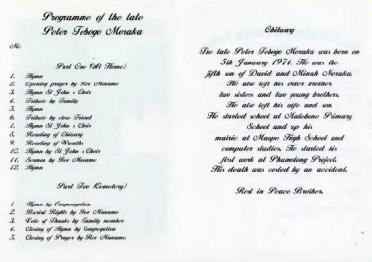 Programme of the late
Peter Tebogo Moraka
Mc
Part One (At Home)
1. Hymn
2. Opening prayer by Rev Maname
3. Hymn St John's Choir
4. Tribute by Family
5. Hymn
6. Tribute by one Friend
7. Hymn St John's Choir
8. Reading of Obituary
9. Reading of Wreaths
10. Hymn by St John's Choir
11. Sermon by Rev Maname
12. Hymn
Part Two (Cemetery)
1. Hymn by Congregation
2. Burial Rights by Rev Maname
3. Vote of Thanks by Family member
4. Closing of Hymn by Congregation
5. Closing of Prayer by Rev Maname.
Obituary
The late Peter Tebogo Moraka was born on
5th January 1974. He was the
fifth son of David and Minah Moraka.
He also left his sister brother
two sisters and two young brothers.
He also left his wife and son
He started school at Malebone Primary
School and up his
matric at Maope High School and
computer studies. He started his
first work at Phumelong Project.
His death was caused by an accident.
Rest in Peace Brother.